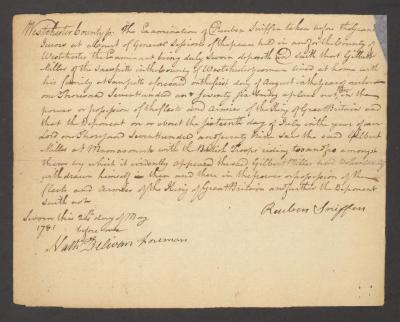 Westchester County ss. The Examination of Reuben Sniffen taken before the Grand
Jurors at a Court of General Sessions of the peace held in and for the County of
Westchester the Examinant being duly Sworn deposeth and saith that Gilbert
Miller of the Sawpitts in the County of Westchester lived at home with
his family at Sawpitts aforesaid until the first day of August in the year of our
Lord one Thousand Seven hundred and Seventy Six being a place not in the
power or possession of the fleets and Armies of the King of Great Britain and
that the Deponent on or about the fifteenth day of July in the year of our
Lord one Thousand Seven hundred and Seventy Nine Saw the said Gilbert
Miller at Mamaroneck with the British Troops riding to and fro amongst
them by which it evidently appeared the said Gilbert Miller had voluntarily
withdrawn himself then and there in the power or possession of the
fleets and Armies of the King of Great Britain and further the Deponent
saith not
Reuben Sniffen
Sworn this 24th day of May
1781 before me
Nathl Delivan foreman